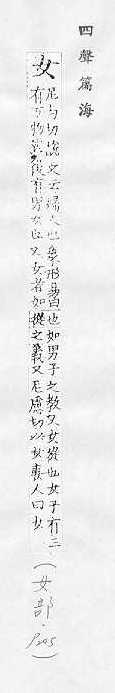 四聲篇海
女 尼与切說文云婦人也象形 也如男子之教又女 也女子有三
有万物 後有男女也又女者如 從之義又尼慮切以女妻人曰女
(女部.
P245)